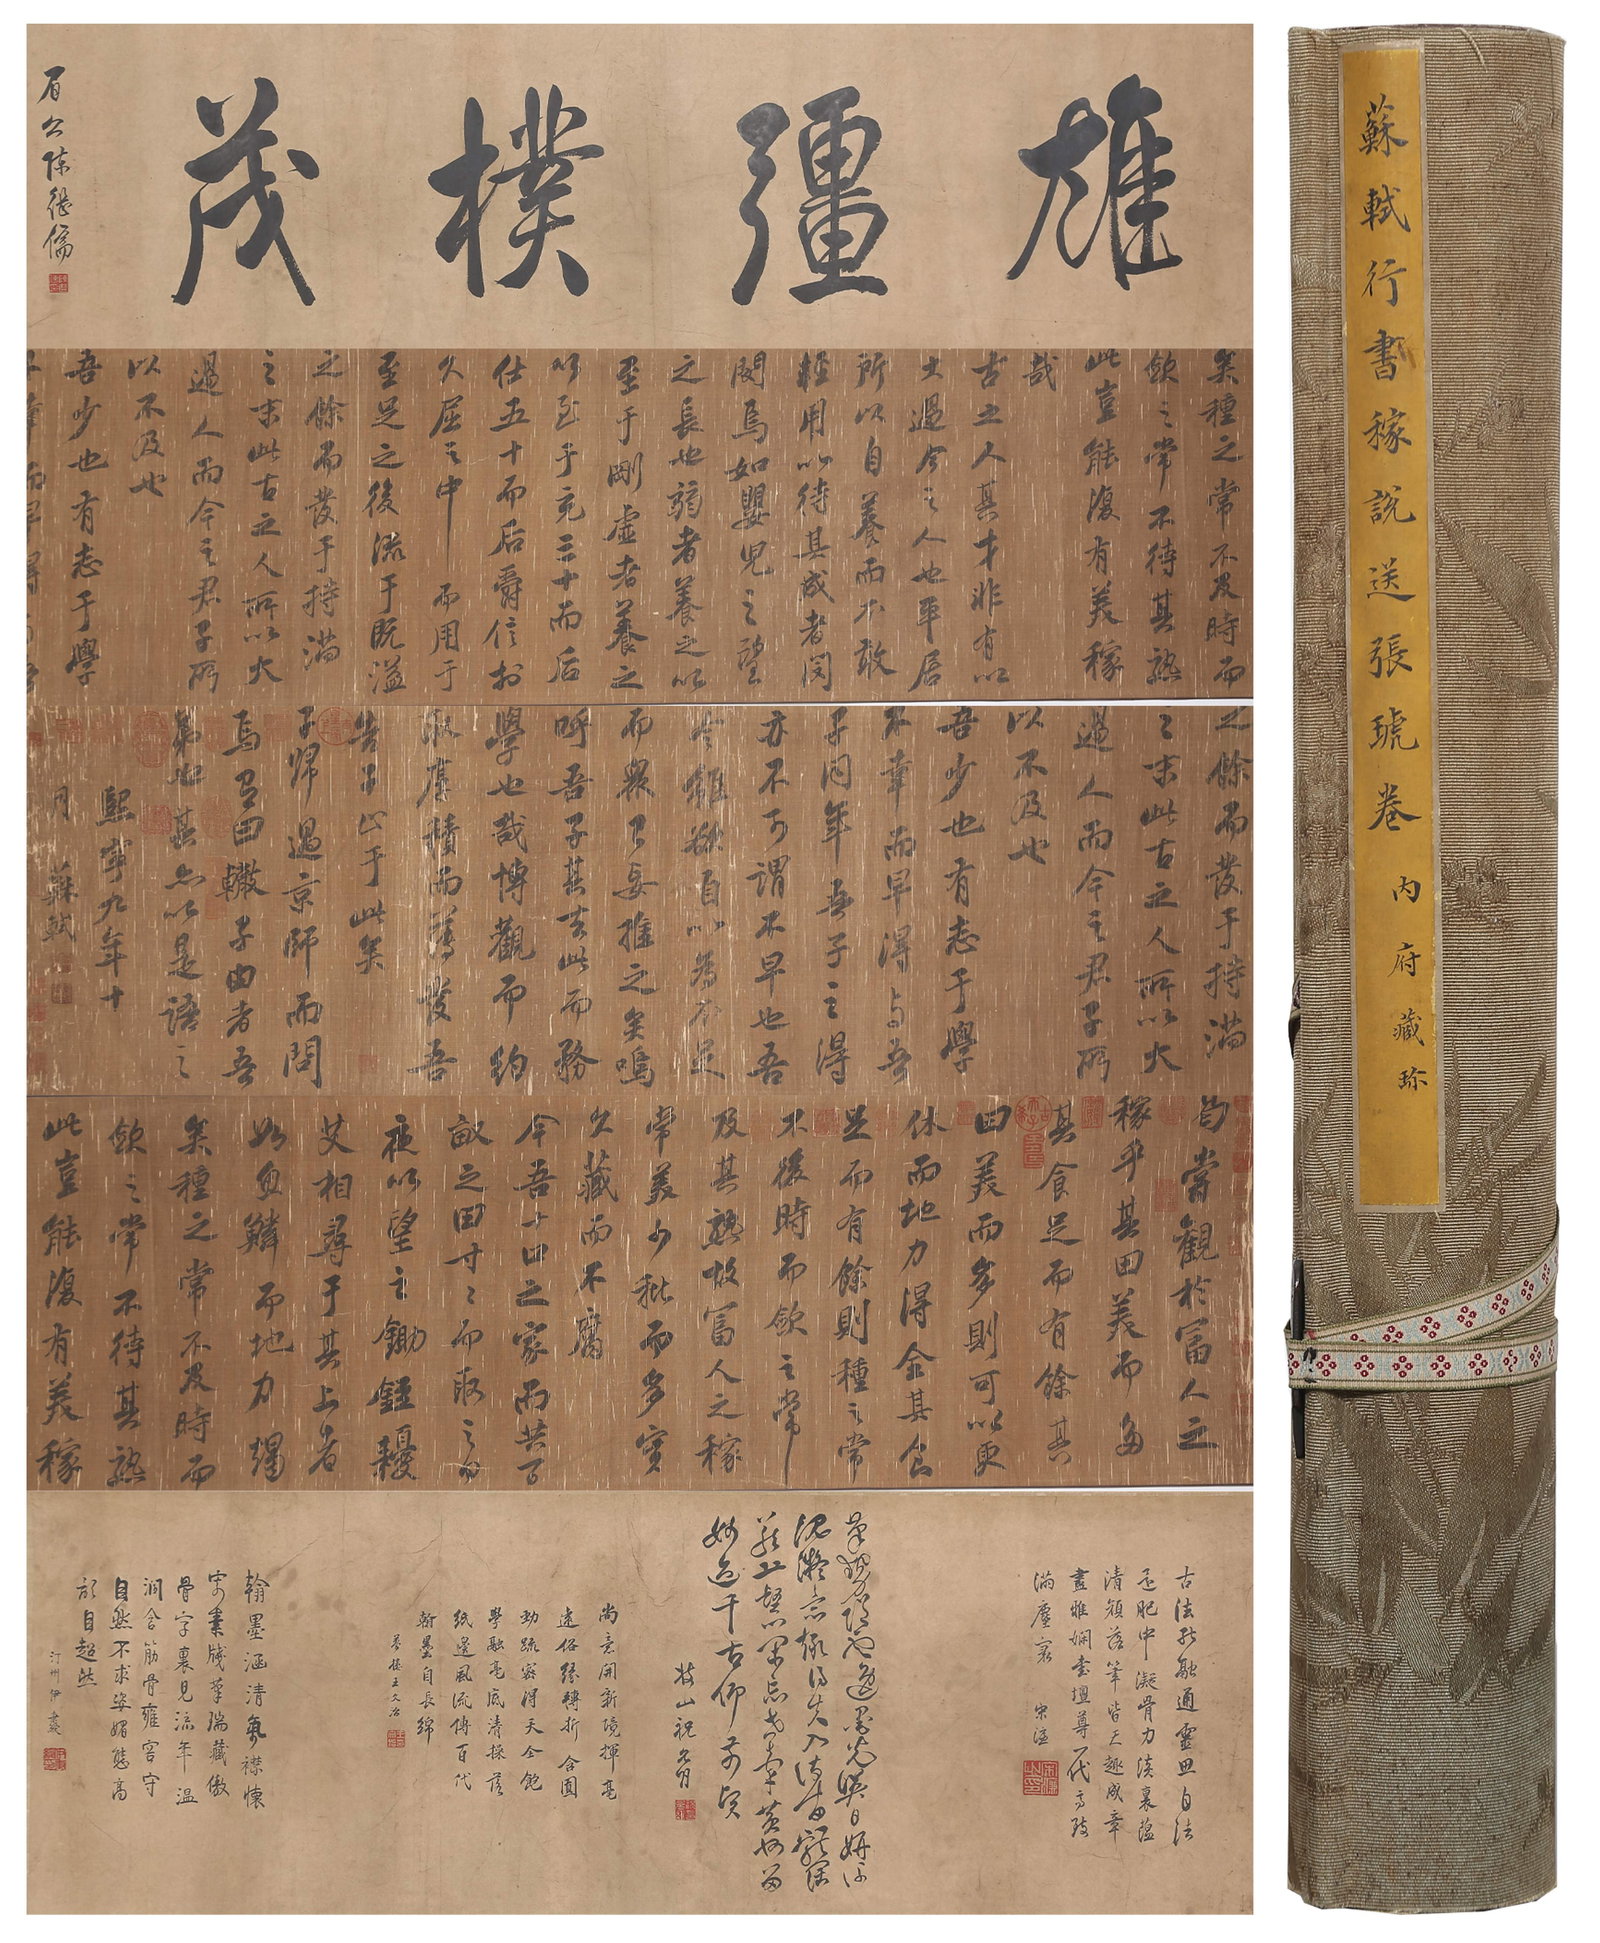 雄彊樸茂
眉公陳繼儒
矣種之常不及時而
斂之常不待其熟
此豈能復有美稼
哉
古之人其才非有以
大過今之人也平居
所以自養而不敢
輕用以待其成者閔
閔焉如嬰兒之望
之長也弱者養之以
至于剛虛者養之
以至于充三十而后
仕五十而后爵信於
久屈之中而用于
至足之後流于既溢
之餘而發于持滿
之末此古之人所以大
過人而今之君子所
以不及也
吾少也有志于學
不幸而早得与吾
之餘而發于持滿
之末此古之人所以大
過人而今之君子所
以不及也
吾少也有志于學
不幸而早得与吾
子同年吾子之得
亦不可謂不早也吾
今雖欲自以為不足
而衆已妄推之矣嗚
呼吾子其去此而務
學也哉博觀而約
取厚積而薄發吾
告子止于此矣
子歸過京師而問
焉有曰轍子由者吾
弟也其亦以是語之
熙寧九年十
月 蘇軾
曷嘗觀於富人之
稼乎其田美而多
其食足而有餘其
田美而多則可以更
休而地力得全其食
足而有餘則種之常
不後時而斂之常
及其熟故富人之稼
常美少秕而多實
久藏而不腐
今吾十口之家而共百
畝之田寸寸而取之日
夜以望之鋤銍耰
艾相尋于其上者
如魚鱗而地力竭
矣種之常不及時而
斂之常不待其熟
此豈能復有美稼
古法能融通靈思自法
肥中凝骨力淡裏蘊
清韻落筆皆天趣成章
盡雅嫻書壇尊一代高致
滿塵寰 宋濂
妙迹千古仰前賢
枝山祝允明
尚意開新境揮毫
遠俗緣轉折含圓
勁疏密得天全飽
學融毫底清操落
紙邊風流傳百代
翰墨自長綿
夢樓王文治
翰墨涵清氣襟懷
寄素牋筆端藏傲
骨字裏見流年溫
潤含筋骨雍容守
自然不求姿媚態高
自超然
汀州伊
蘇軾行書稼說送張琥卷 內府藏珍